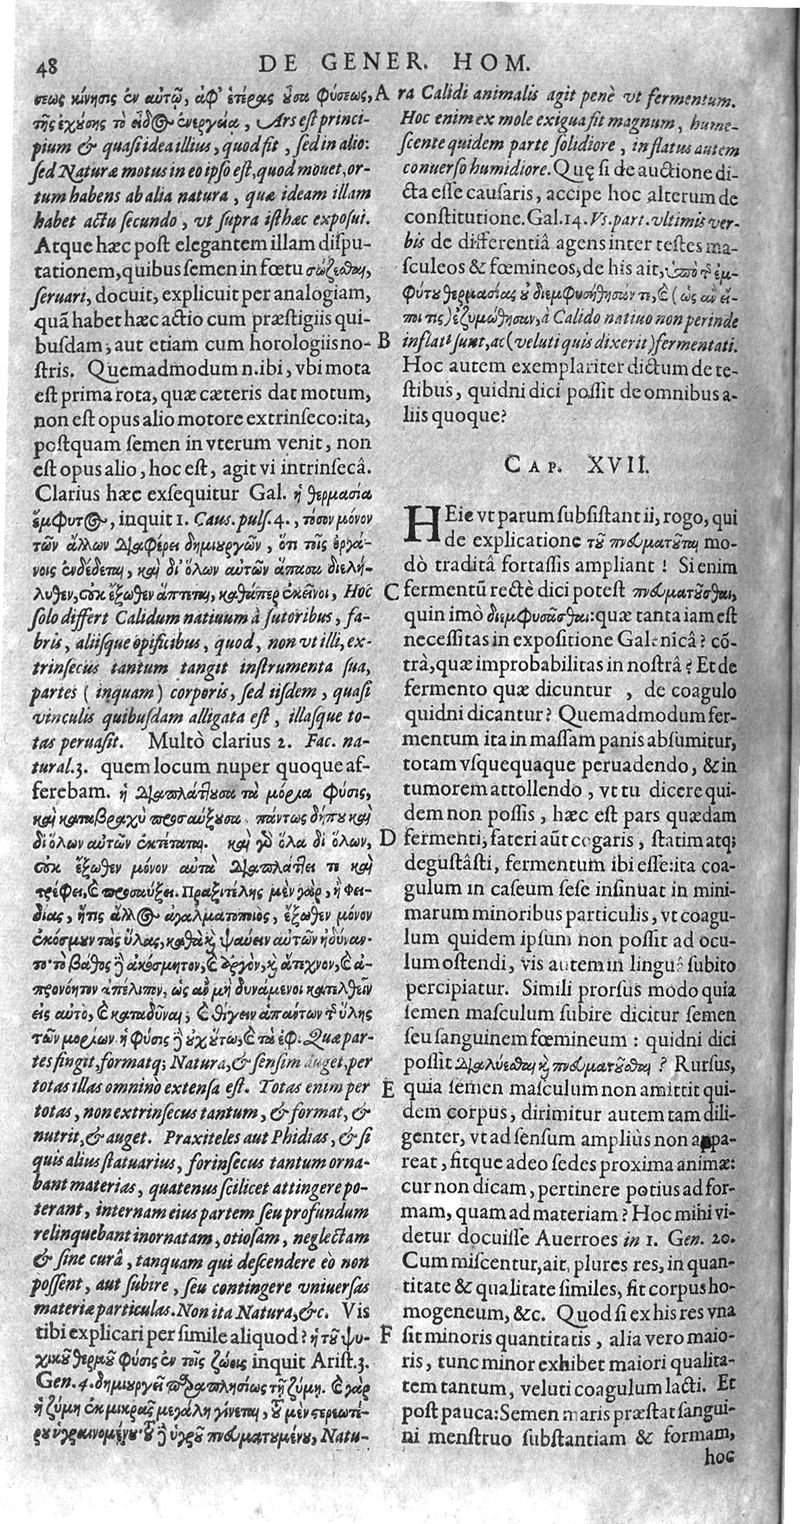 48 DE GENER. HOM.
σεως κίνησις ἐν αὐτῷ, ἀφ' ἑτέρας οὖσα φύσεως,
τῆς ἐχούσης τὸ εἶδος ἐνεργείᾳ, Ars est princi-
pium & quasi idea illius, quod fit, sed in alio:
sed Naturæ motus in eo ipso est, quod mouet, or-
tum habens ab alia natura, quæ ideam illam
habet actu secundo, vt supra isthæc exposui.
Atque hæc post elegantem illam dispu-
tationem, quibus semen in fœtu σώζεσθαι,
seruari, docuit, explicuit per analogiam,
quã habet hæc actio cum præstigiis qui-
busdam, aut etiam cum horologiis no-
stris. Quemadmodum n. ibi, vbi mota
est prima rota, quæ cæteris dat motum,
non est opus alio motore extrinseco: ita,
postquam semen in vterum venit, non
est opus alio, hoc est, agit vi intrinsecâ.
Clarius hæc exsequitur Gal. ἡ θερμασία
ἔμφυτος, inquit 1. Caus. puls. 4., τόσον μόνον
τῶν ἄλλων διαφέρει δημιουργῶν, ὅτι τοῖς ὀργά-
νοις ἐνδέδεται, καὶ δι' ὅλων αὐτῶν ἅπασα διελή-
λυθεν, οὐκ ἔξωθεν ἅπτεται, καθάπερ ἐκεῖνοι, Hoc
solo differt Calidum natiuum à sutoribus, fa-
bris, aliisque opificibus, quod, non vt illi, ex-
trinsecus tantum tangit instrumenta sua,
partes (inquam) corporis, sed iisdem, quasi
vinculis quibusdam alligata est, illasque to-
tas peruasit. Multò clarius 2. Fac. na-
tural. 3. quem locum nuper quoque af-
ferebam. ἡ διαπλάττουσα τὰ μόρια φύσις,
καὶ καταβραχὺ προσαύξουσα πάντως δήπου καὶ
δι' ὅλων αὐτῶν ἐκτέταται. καὶ γὸ ὅλα δι' ὅλων,
οὐκ ἔξωθεν μόνον αὐτὰ διαπλάττει τε καὶ
τρέφει, καὶ προσαύξει. Πραξιτέλης μὲν γὰρ, ἢ Φει-
δίας, ἤ τις ἄλλος ἀγαλματοποιὸς, ἔξωθεν μόνον
ἐκόσμουν τὰς ὕλας, καθὰ καὶ ψαύειν αὐτῶν ἠδύναν-
το· τὸ βάθος δὲ ἀκόσμητον, καὶ ἀργὸν, καὶ ἄτεχνον, καὶ ἀ-
προνόητον ἀπέλιπον, ὡς ἂν μὴ δυνάμενοι κατελθεῖν
εἰς αὐτὸ, καὶ καταδῦναι, καὶ θίγειν ἁπάντων τῆς ὕλης
τῶν μορίων ἡ φύσις δὲ οὐχ οὕτω, καὶ τὰ ἑφ. Quæ par-
tes fingit, formatq; Natura, & sensim auget, per
totas illas omninò extensa est. Totas enim per
totas, non extrinsecus tantum, & format, &
nutrit, & auget. Praxiteles aut Phidias, & si
quis alius statuarius, forinsecus tantum orna-
bant materias, quatenus scilicet attingere po-
terant, internam eius partem seu profundum
relinquebant inornatam, otiosam, neglectam
& sine curâ, tanquam qui descendere eò non
possent, aut subire, seu contingere vniuersas
materiæ particulas. Non ita Natura, &c. Vis
tibi explicari per simile aliquod? ἡ τοῦ ψυ-
χικοῦ θερμοῦ φύσις ἐν τοῖς ζῴοις inquit Arist. 3.
Gen. 4. δημιουργεῖ παραπλησίως τῇ ζύμῃ. καὶ γὰρ
ἡ ζύμη ἐκ μικρᾶς μεγάλη γίνεται, τοῦ μὲν στερεωτέ-
ρου ὑγραινομένου· τοῦ δὲ ὑγροῦ πνευματουμένου, Natu-
A ra Calidi animalis agit penè vt fermentum.
Hoc enim ex mole exigua fit magnum, hume-
scente quidem parte solidiore, inflatus autem
conuerso humidiore. Quę si de auctione di-
cta esse causaris, accipe hoc alterum de
constitutione. Gal. 14. Vs. part. vltimis ver-
bis de differentiâ agens inter testes ma-
sculeos & fœmineos, de his ait, ὑπὸ τῆς ἐμ-
φύτου θερμασίας οὐ διεμφυσήθησάν τε, καὶ (ὡς ἂν εἴ-
ποι τις) ἐζυμώθησαν, à Calido natiuo non perinde
B inflati sunt, ac (veluti quis dixerit) fermentati.
Hoc autem exemplariter dictum de te-
stibus, quidni dici possit de omnibus a-
liis quoque?
CAP. XVII.
HEie vt parum subsistant ii, rogo, qui
de explicatione τοῦ πνευματοῦται mo-
dò traditâ fortassis ampliant! Si enim
C fermentũ rectè dici potest πνευματοῦσθαι,
quin imò διεμφυσᾶσθαι: quæ tanta iam est
necessitas in expositione Galenicâ? cõ-
trà, quæ improbabilitas in nostrâ? Et de
fermento quæ dicuntur, de coagulo
quidni dicantur? Quemadmodum fer-
mentum ita in massam panis absumitur,
totam vsquequaque peruadendo, & in
tumorem attollendo, vt tu dicere qui-
dem non possis, hæc est pars quædam
D fermenti, fateri aũt cogaris, statim atq;
degustâsti, fermentum ibi esse: ita coa-
gulum in caseum sese insinuat in mini-
marum minoribus particulis, vt coagu-
lum quidem ipsum non possit ad ocu-
lum ostendi, vis autem in linguâ subito
percipiatur. Simili prorsus modo quia
semen masculum subire dicitur semen
seu sanguinem fœmineum: quidni dici
possit διαλύεσθαι καὶ πνευματοῦσθαι? Rursus,
E quia semen masculum non amittit qui-
dem corpus, dirimitur autem tam dili-
genter, vt ad sensum ampliùs non appa-
reat, fitque adeo sedes proxima animæ:
cur non dicam, pertinere potius ad for-
mam, quam ad materiam? Hoc mihi vi-
detur docuisse Auerroes in 1. Gen. 20.
Cum miscentur, ait, plures res, in quan-
titate & qualitate similes, fit corpus ho-
mogeneum, &c. Quod si ex his res vna
F sit minoris quantitatis, alia vero maio-
ris, tunc minor exhibet maiori qualita-
tem tantum, veluti coagulum lacti. Et
post pauca: Semen maris præstat sangui-
ni menstruo substantiam & formam,
hoc